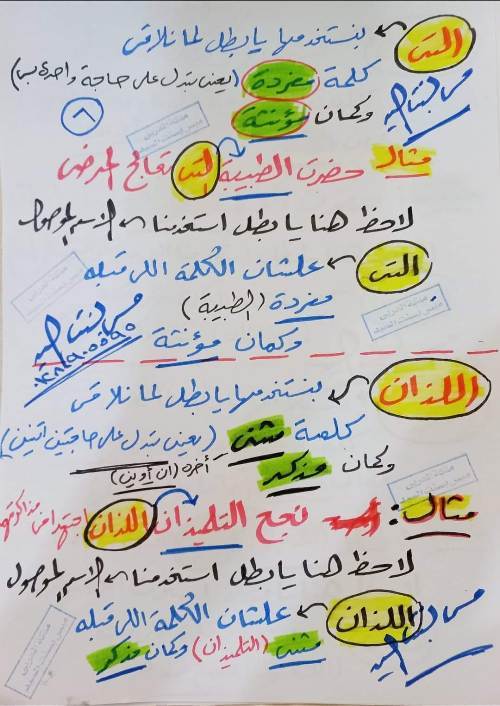 التى ← بنستخدمها يا بطل لما نلاقى
كلمة مفردة (يعنى بتدل على حاجة واحدة بس)
وكمان مؤنثة
٨
مثال حضرت الطبيبة التى تعالج المرضى
لاحظ هنا يا بطل استخدمنا ← الاسم الموصول
التى ← علشان الكلمة اللى قبله
مفردة (الطبيبة)
وكمان مؤنثة
اللذان ← بنستخدمها يا بطل لما نلاقى
كلمة مثنى (يعنى بتدل على حاجتين اتنين)
وكمان مذكر أخره (ان أو ين)
مثال: نجح التلميذان اللذان اجتهدا فى مذاكرتهما
لاحظ هنا يا بطل استخدمنا ← الاسم الموصول
اللذان ← علشان الكلمة اللى قبله
مثنى (التلميذان) وكمان مذكر